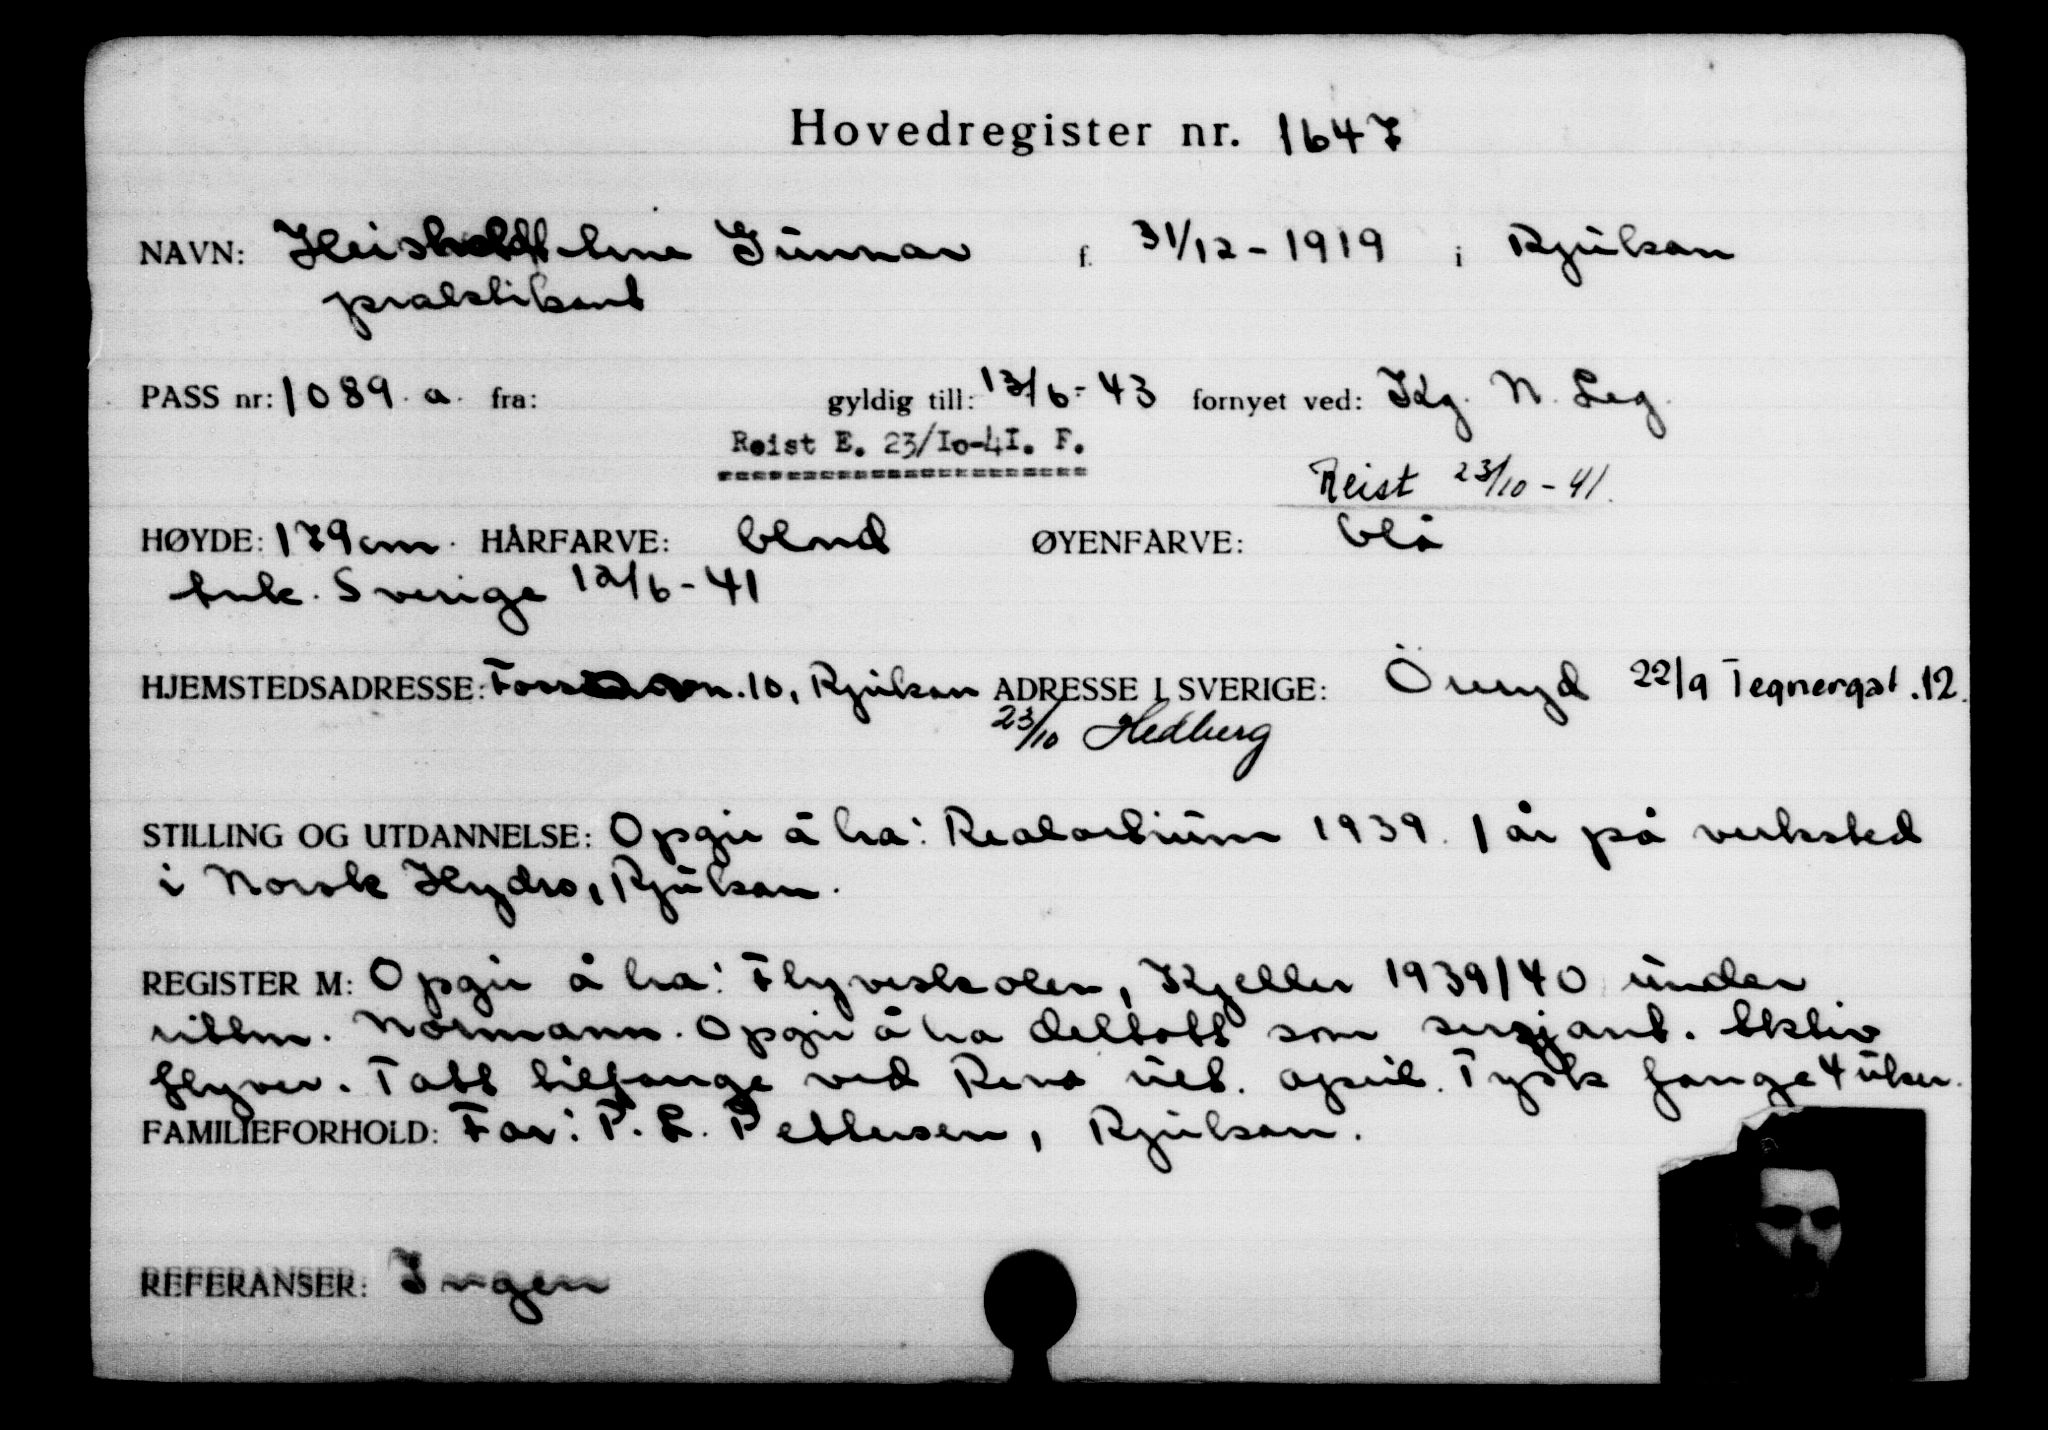 Hovedregister nr. 1647
NAVN: Gunnar f. 31/12-1919 i Rjukan
praktikant
PASS nr: 1089.a. fra: gyldig till: 13/6-43 fornyet ved: Kg. N. Leg.
Reist E. 23/Io-4I. F.
Reist 23/10-41.
HØYDE: 179 cm. HÅRFARVE: blond ØYENFARVE: blå
Ank. Sverige 12/6-41
HJEMSTEDSADRESSE: 10, Rjukan ADRESSE I SVERIGE: Öreryd 22/9 Tegnergat.12.
23/10 Hedberg
STILLING OG UTDANNELSE: Opgir å ha: Realartium 1939. 1 år på verksted
i Norsk Hydro, Rjukan.
REGISTER M: Opgir å ha: Flyveskolen, Kjeller 1939/40 under
rittm. Normann. Opgir å ha deltatt som sersjant. Aktiv
flyver. Tatt tilfange ved Rena ult. april. Tysk fange 4 uker.
FAMILIEFORHOLD: Far: P. L. Pettersen, Rjukan.
REFERANSER: Ingen